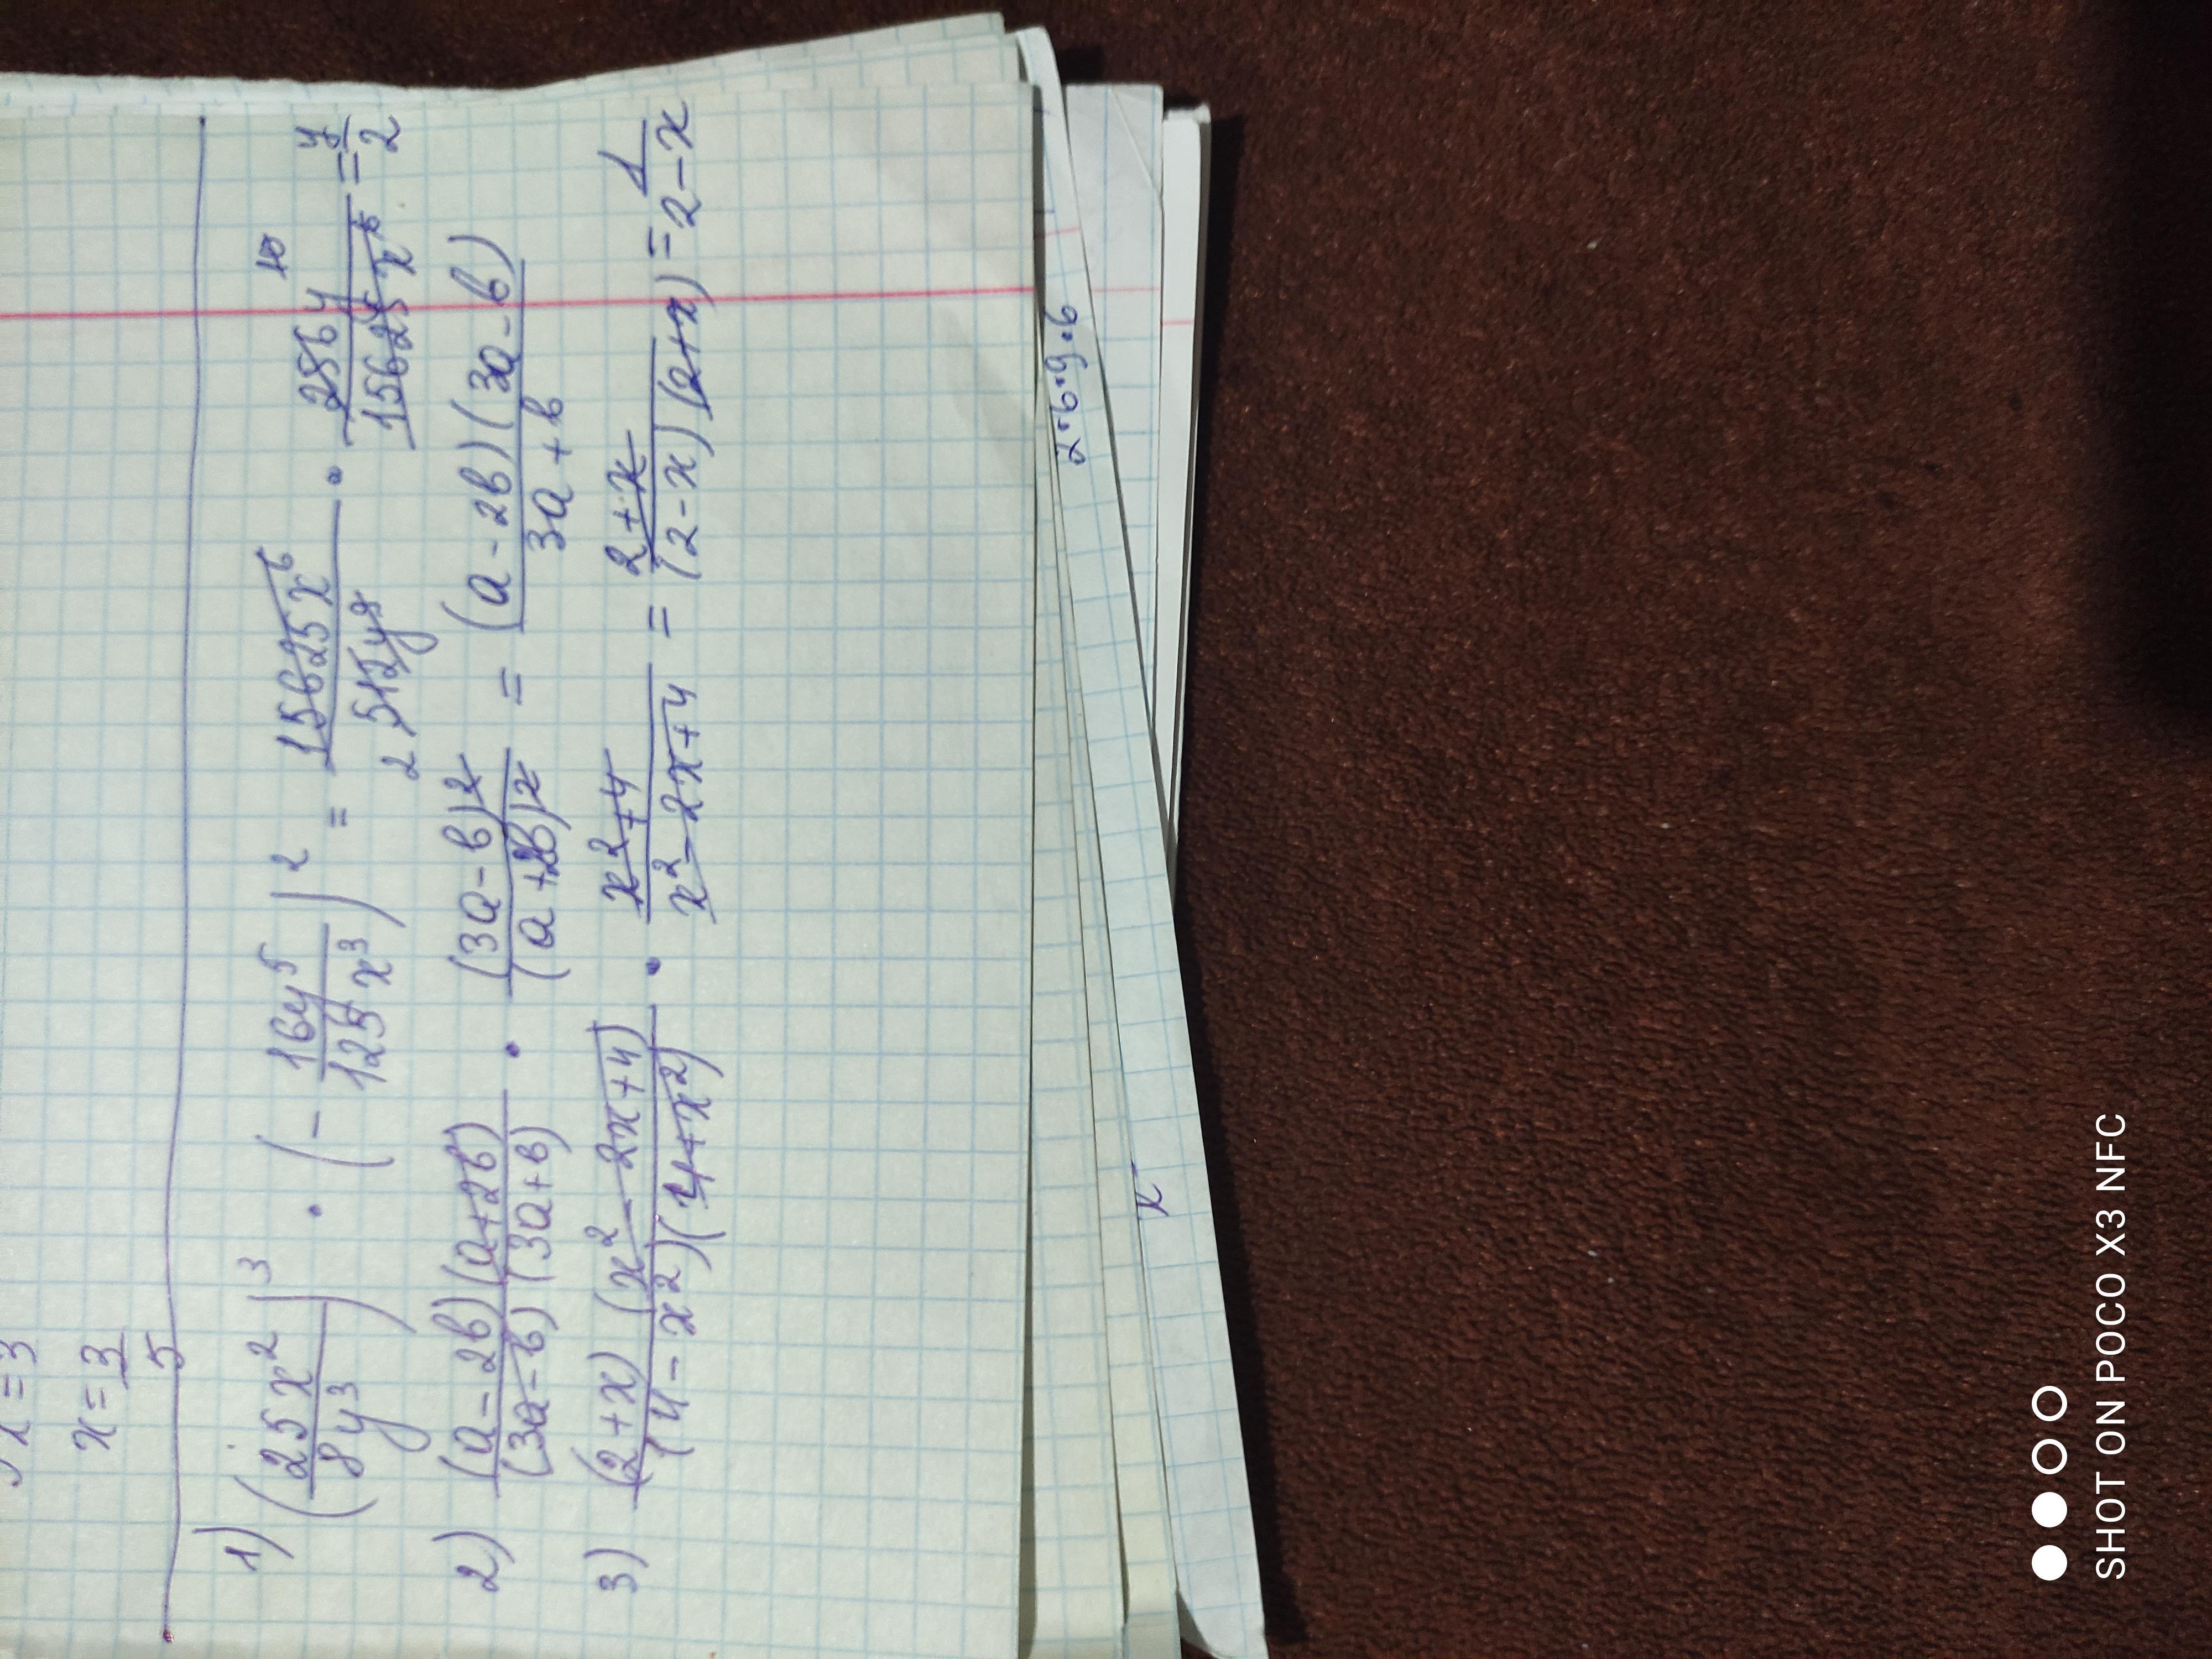 x = 3
x = 3/5
1) (25x²/8y³)³ · (- 16y⁵/125x³)² = 15625x⁶/512y⁹ · 256y¹⁰/15625x⁶ = y/2
2
2) (a-2b)(a+2b)/(3a-b)(3a+b) · (3a-b)²/(a+2b)² = (a-2b)(3a-b)/3a+b
3) (2+x)(x²-2x+4)/(4-x²)(4+x²) · x²+4/x²-2x+4 = 2+x/(2-x)(2+x) = 1/2-x
SHOT ON POCO X3 NFC